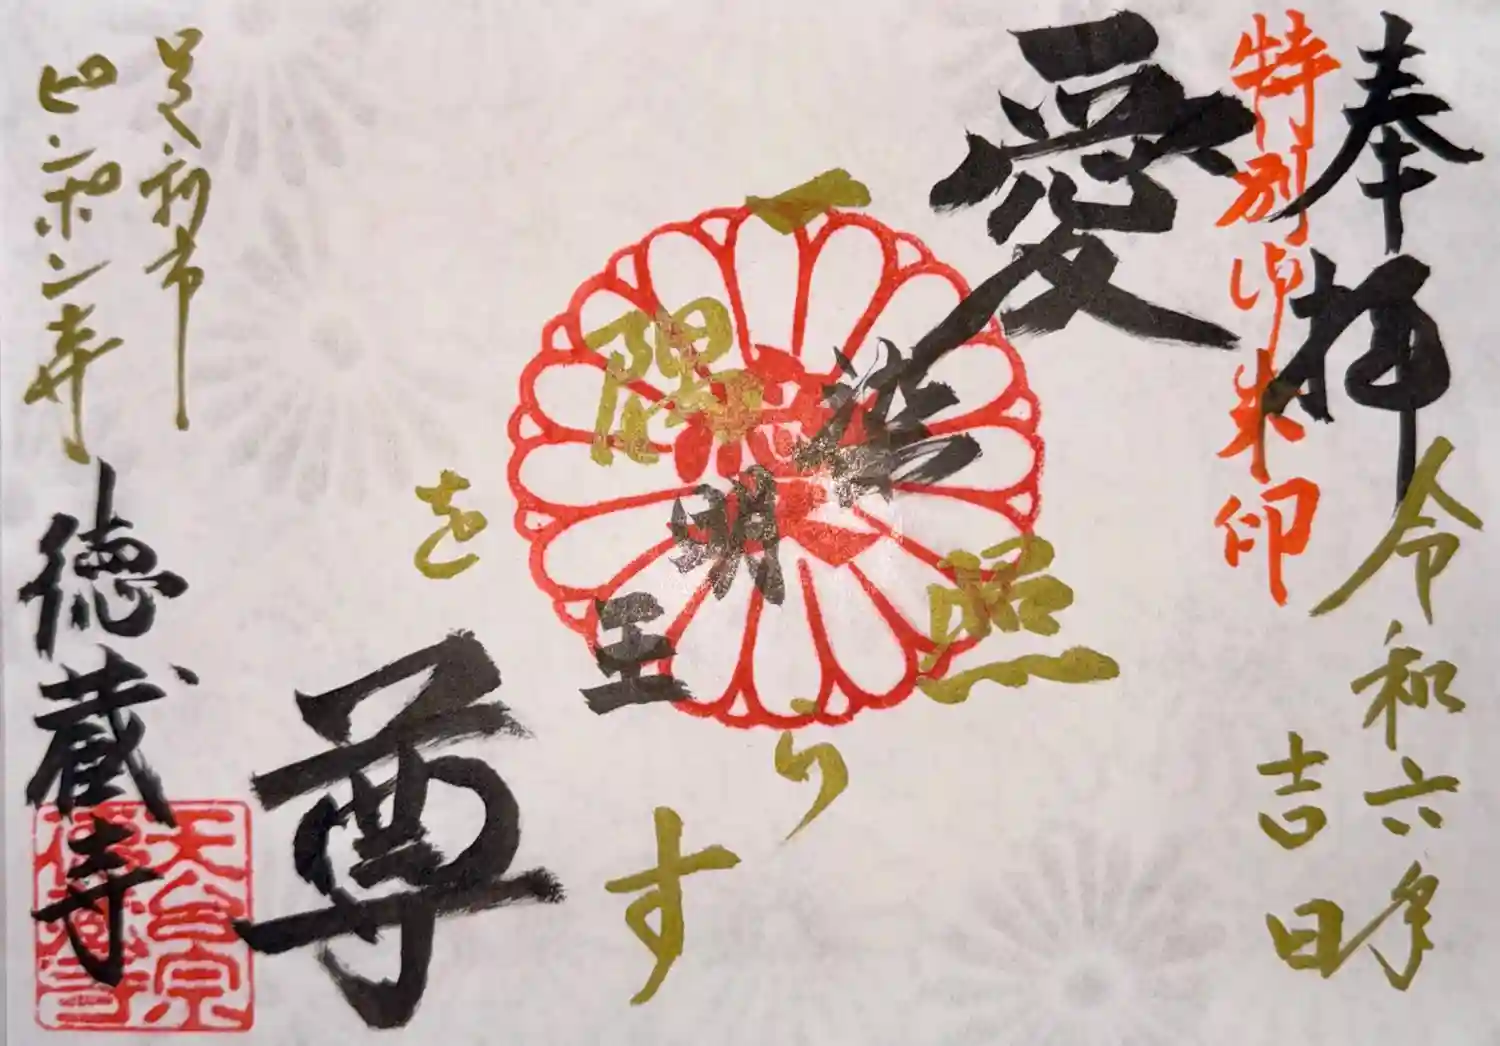 奉拝
令和六年
吉日
特別御朱印
愛染明王尊
一隅を照らす
足利市
ピンポン寺
徳蔵寺
天台宗
徳蔵寺